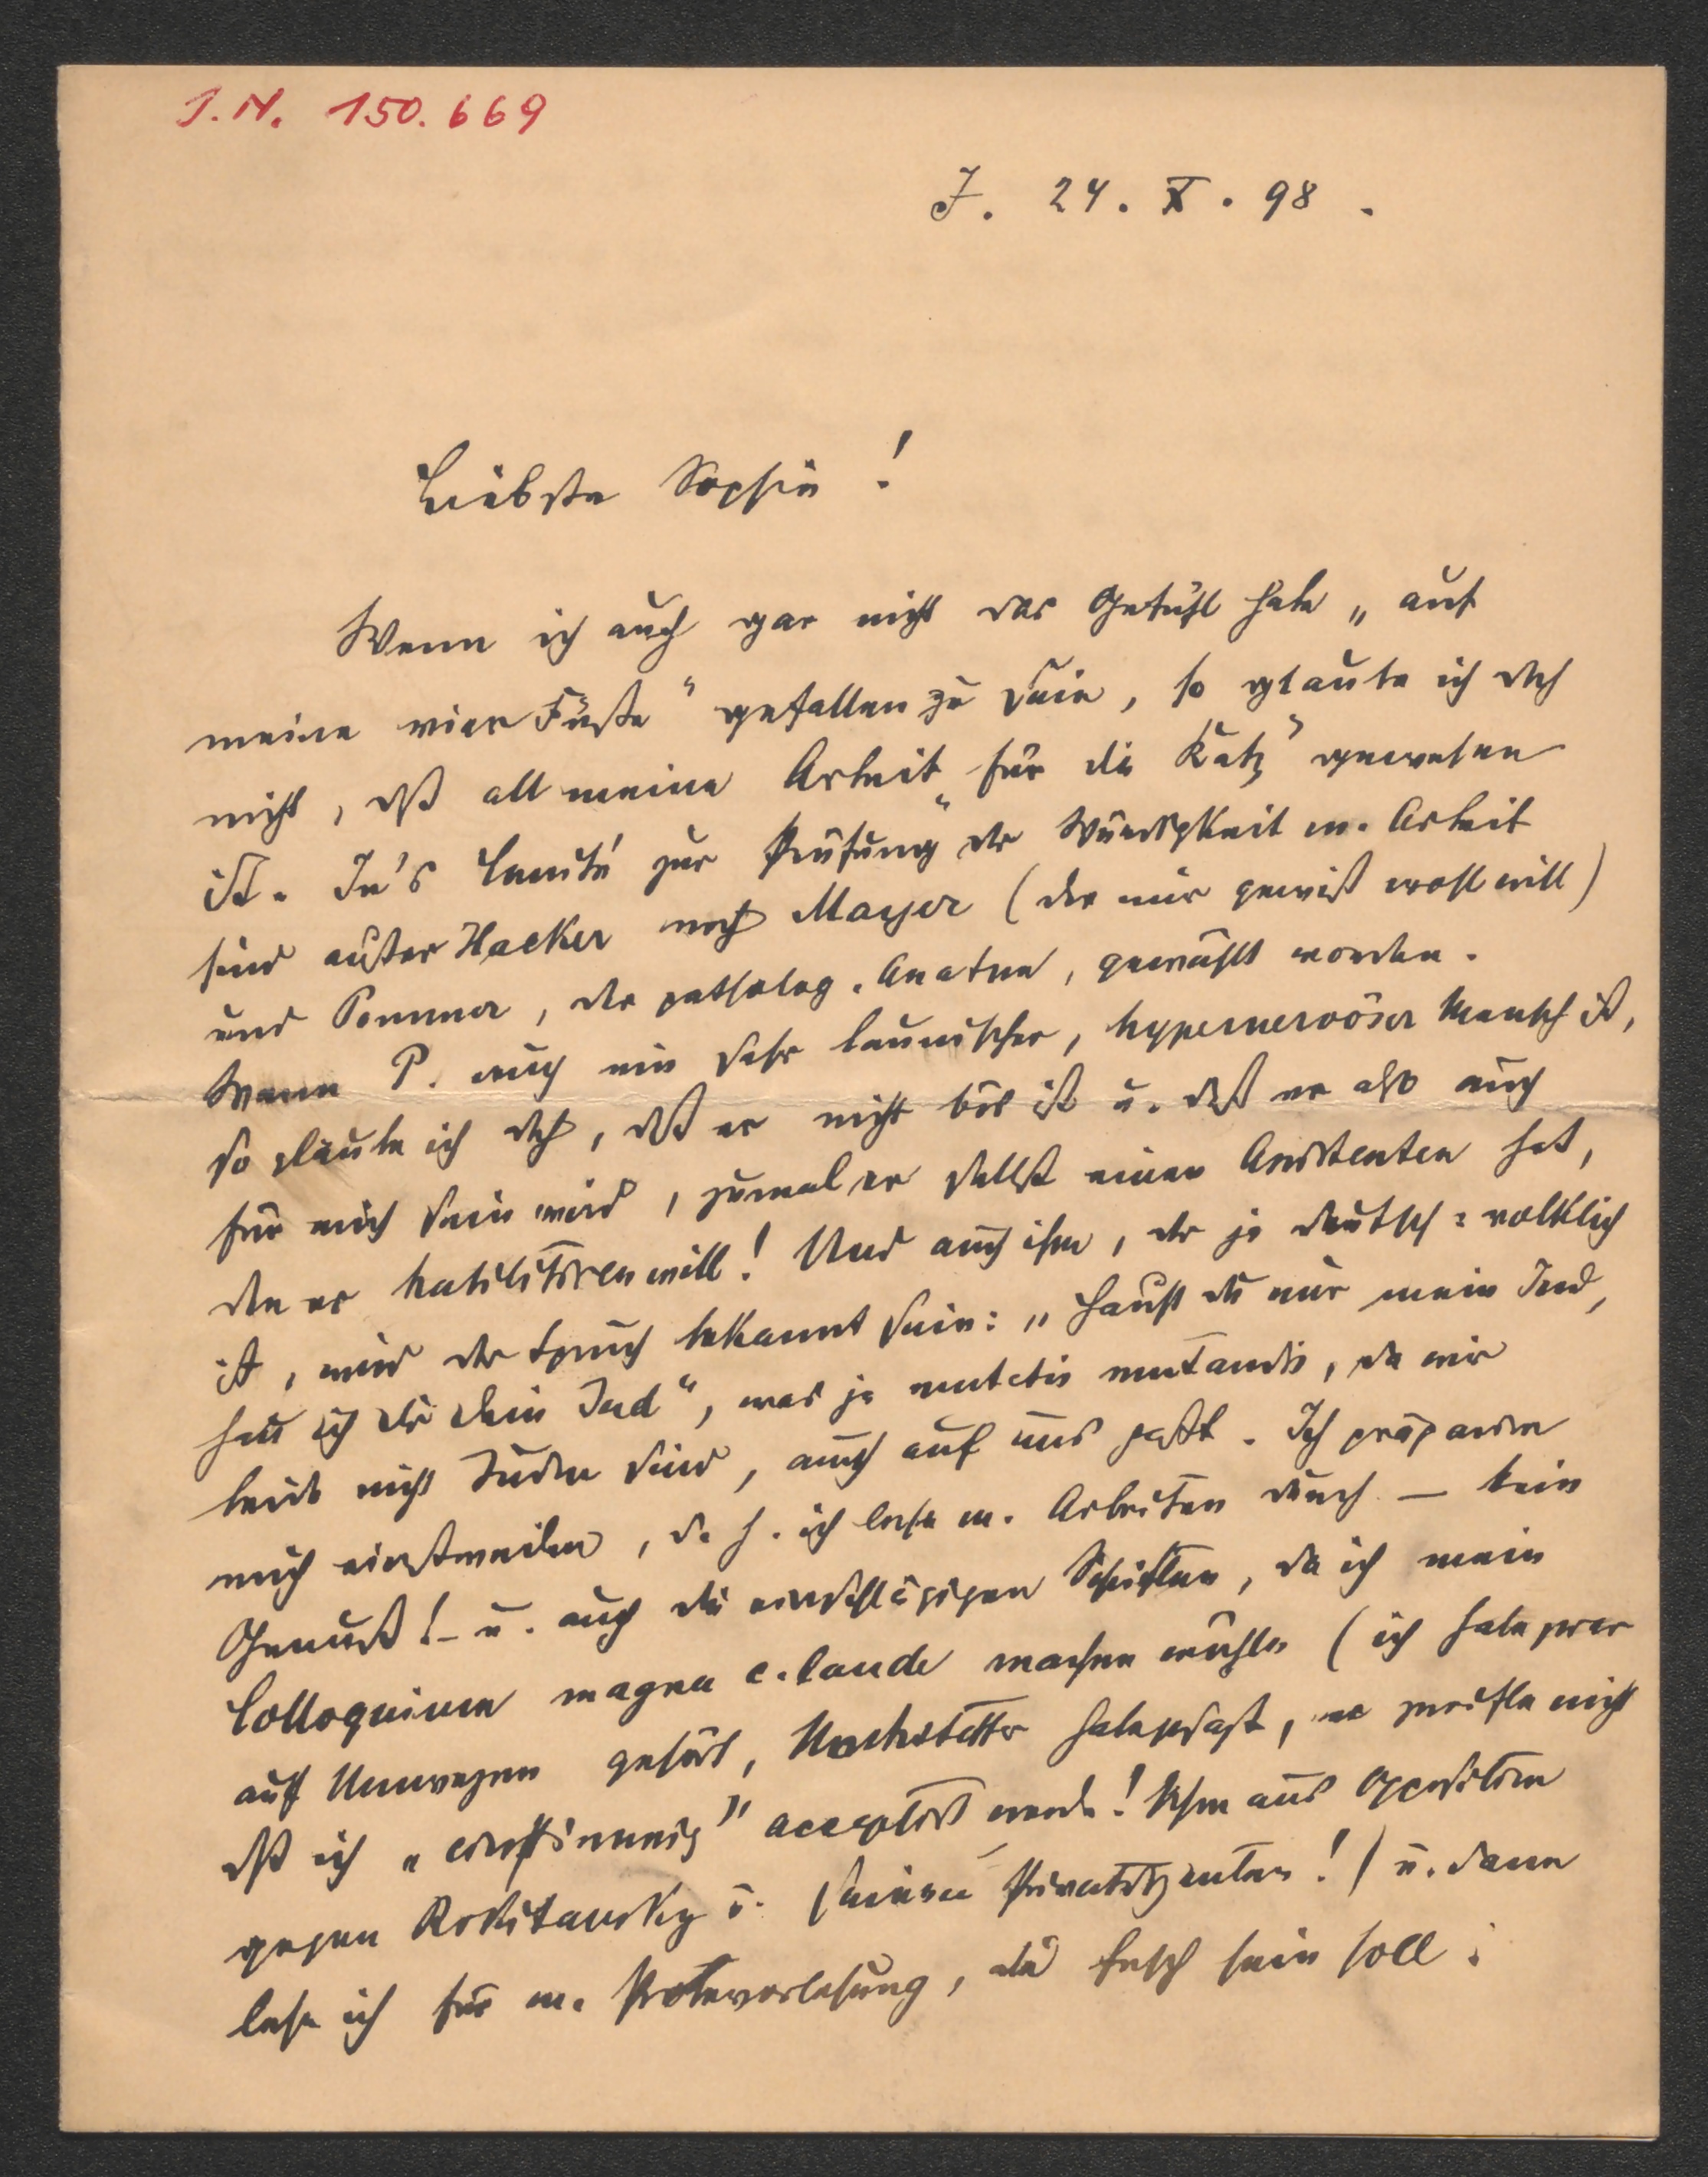 J.N. 150.669
I. 24. X. 98.
Liebste Sophie!
Wenn ich auch gar nicht das Gefühl habe „auf
meine vier Füße“ gefallen zu sein, so glaube ich doch
nicht, dß all meine Arbeit „für die Katz“ gewesen
ist. In's Comité zur Prüfung der Würdigkeit m. Arbeit
sind außer Hacker noch Mayer (der mir gewiß wohl will)
und Pommer, der patholog. Anatom, gewählt worden.
Wenn P. auch ein sehr launischer, hypernervöser Mensch ist,
so glaube ich doch, dß er nicht bös ist u. daß er also auch
für mich sein wird, zumal er selbst einen Assistenten hat,
den er habilitiren will! Und auch ihm, der ja deutsch=volklich
ist, wird der Spruch bekannt sein: „Haust du mir mein Jud,
hau ich dir dein Jud“, was ja mutatis mutandis, da wir
beide nicht Juden sind, auch auf uns paßt. Ich präparire
mich einstweilen, d. h. ich lese m. Arbeiten durch — kein
Genuß! – u. auch die einschlägigen Schriften, da ich mein
Colloquium magna c. laude machen möchte (ich habe zwar
auf Umwegen gehört, Hochstetter habe gesagt, er zweifle nicht
dß ich „einstimmig“ acceptirt werde! Schon aus Opposition
gegen Rokitansky u. seinen Privatdozenten!) u. dann
lese ich für m. Probevorlesung, die fesch sein soll: